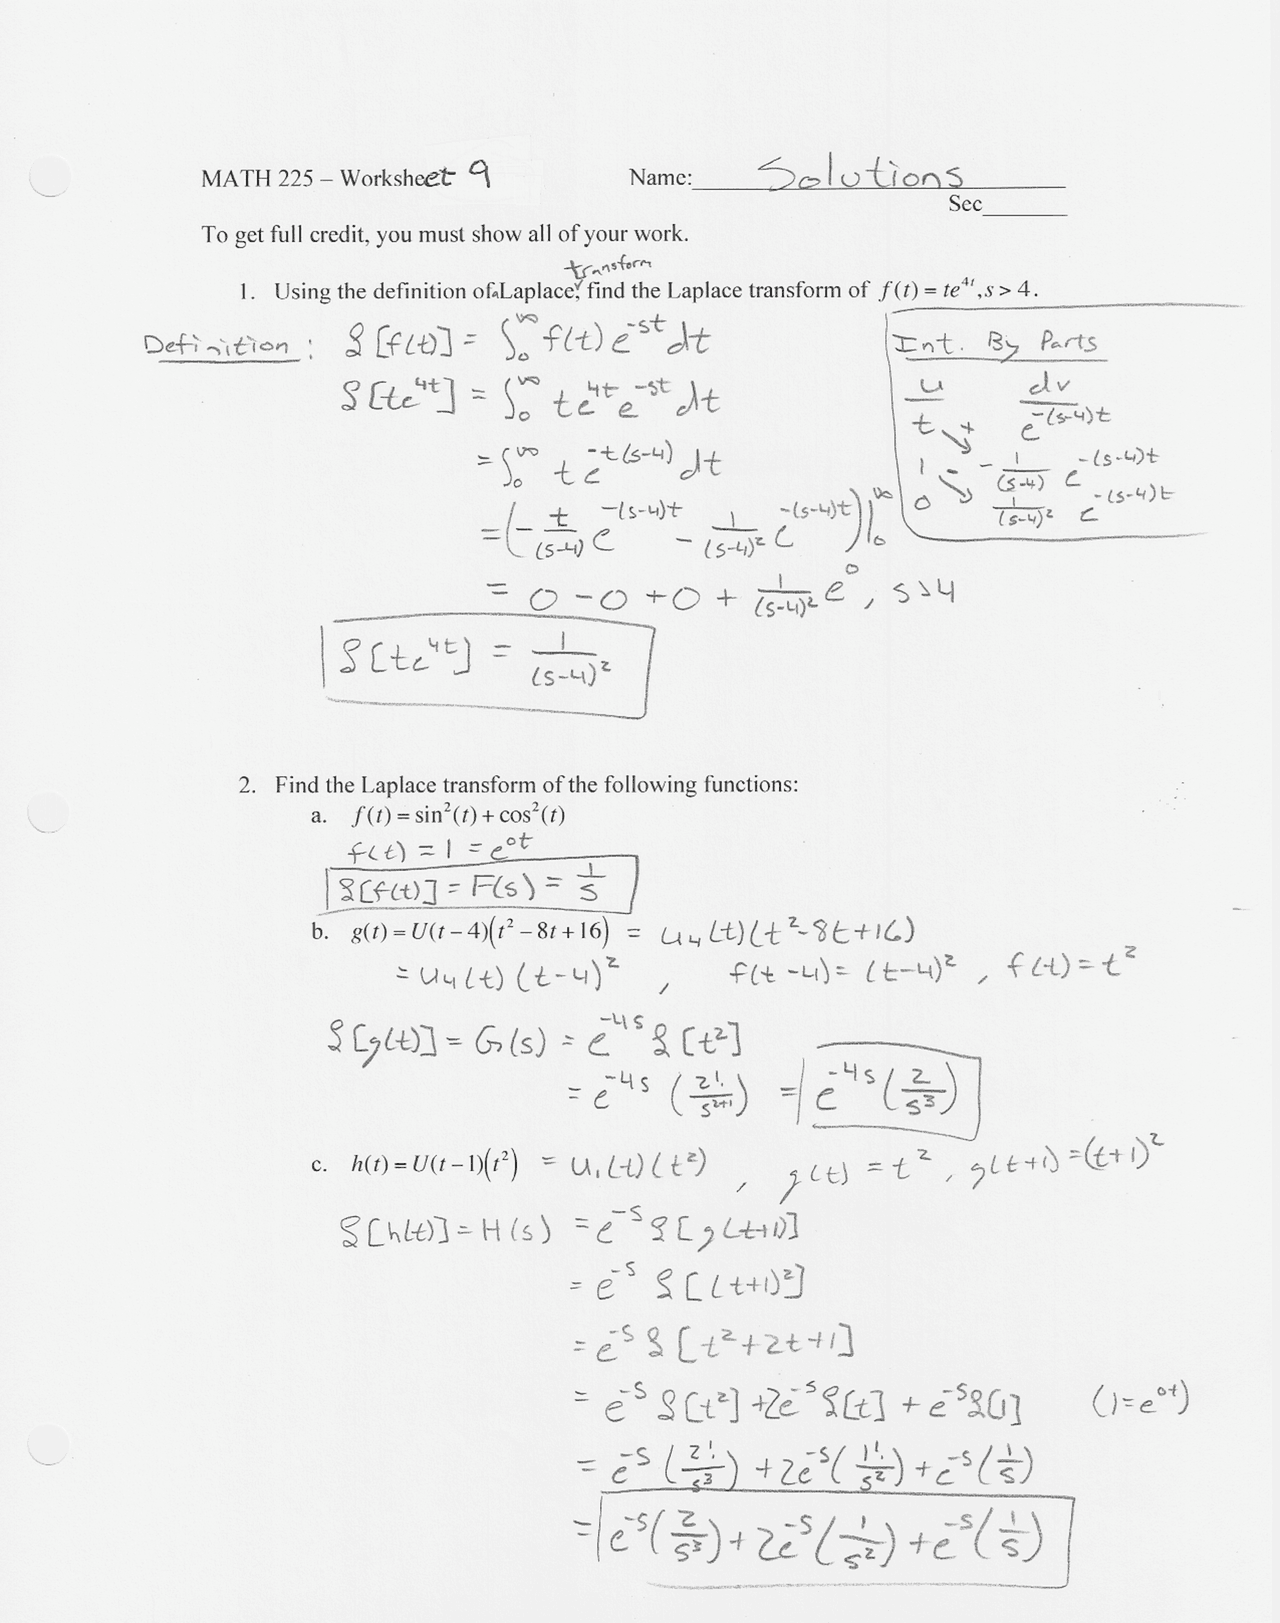 MATH 225 – Worksheet 9 Name: Solutions
Sec
To get full credit, you must show all of your work.
transform
1. Using the definition of Laplace, find the Laplace transform of f(t) = te^{4t}, s > 4.
Definition: ℒ[f(t)] = ∫_0^∞ f(t) e^{-st} dt
ℒ[te^{4t}] = ∫_0^∞ te^{4t} e^{-st} dt
= ∫_0^∞ te^{-t(s-4)} dt
= (-t/(s-4) e^{-(s-4)t} - 1/(s-4)² e^{-(s-4)t})|_0^∞
= 0 - 0 + 0 + 1/(s-4)² e^0, s>4
ℒ[te^{4t}] = 1/(s-4)²
Int. By Parts
u dv
t + e^{-(s-4)t}
1 - -1/(s-4) e^{-(s-4)t}
0 1/(s-4)² e^{-(s-4)t}
2. Find the Laplace transform of the following functions:
a. f(t) = sin²(t) + cos²(t)
f(t) = 1 = e^{0t}
ℒ[f(t)] = F(s) = 1/s
b. g(t) = U(t – 4)(t² – 8t + 16) = u₄(t)(t²-8t+16)
= u₄(t)(t-4)², f(t-4) = (t-4)², f(t) = t²
ℒ[g(t)] = G(s) = e^{-4s} ℒ[t²]
= e^{-4s} (2!/s^{2+1}) = e^{-4s} (2/s³)
c. h(t) = U(t – 1)(t²) = u₁(t)(t²), g(t) = t², g(t+1) = (t+1)²
ℒ[h(t)] = H(s) = e^{-s} ℒ[g(t+1)]
= e^{-s} ℒ[(t+1)²]
= e^{-s} ℒ[t²+2t+1]
= e^{-s} ℒ[t²] + 2e^{-s} ℒ[t] + e^{-s} ℒ[1] (1=e^{0t})
= e^{-s} (2!/s³) + 2e^{-s} (1!/s²) + e^{-s} (1/s)
= e^{-s} (2/s³) + 2e^{-s} (1/s²) + e^{-s} (1/s)